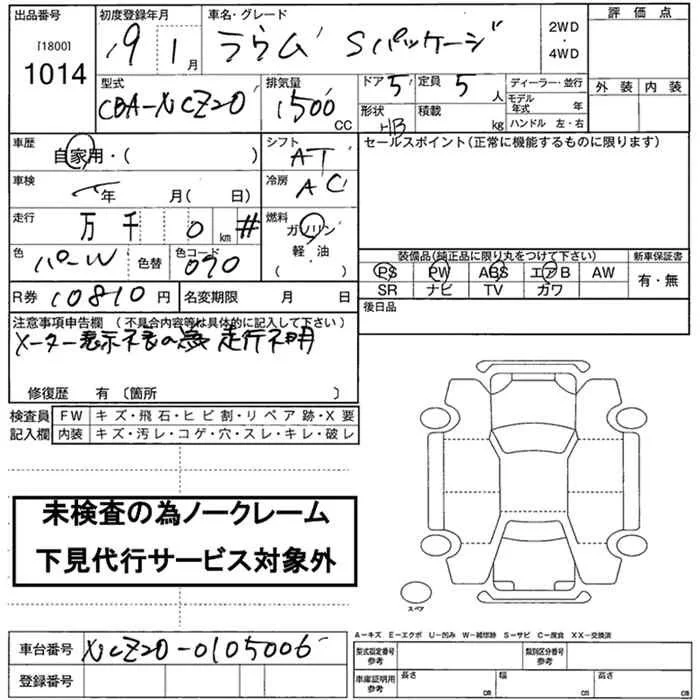 出品番号 初度登録年月 車名・グレード 評価点
[1800]
1014 19 1月 ラウム Sパッケージ 2WD ・ 4WD
外装 内装
型式 排気量 ドア 5 定員 5人 ディーラー・並行
CBA-NCZ20 1500CC 形状 HB 積載 kg モデル年式 年
ハンドル 左・右
車歴 自家用・( ) シフト AT セールスポイント(正常に機能するものに限ります)
車検 年 月( 日) 冷房 AC
走行 万 千 0 km # 燃料 ガソリン・軽油・( )
色 パール 色替 色コード 070
装備品(純正品に限り丸をつけて下さい) 新車保証書
PS PW ABS エアB AW 有・無
SR ナビ TV ガワ
R券 10810円 名変期限 月 日 後日品
注意事項申告欄 (不具合内容等は具体的に記入して下さい)
メーター表示不良の為 走行不明
修復歴 有 〔箇所 〕
検査員 FW キズ・飛石・ヒビ割・リペア跡・X要
記入欄 内装 キズ・汚レ・コゲ・穴・スレ・キレ・破レ
未検査の為ノークレーム
下見代行サービス対象外
スペア
A-キズ E-エクボ U-凹み W-補修跡 S-サビ C-腐食 XX-交換済
車台番号 NCZ20-0105006
登録番号
型式指定番号 参考 類別区分番号 参考
車庫証明用 参考 長さ cm 幅 cm 高さ cm